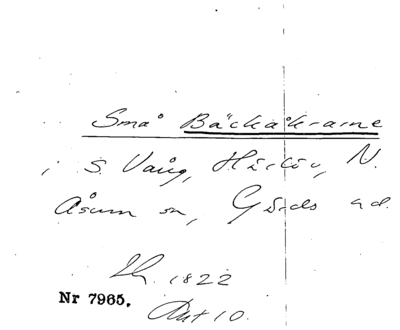 Små Bäckåkrarne
i S. Vång, Härlöv, N.
Åsum sn, Gärds hd.
Lh. 1822
Nr 7965.
Akt 10.